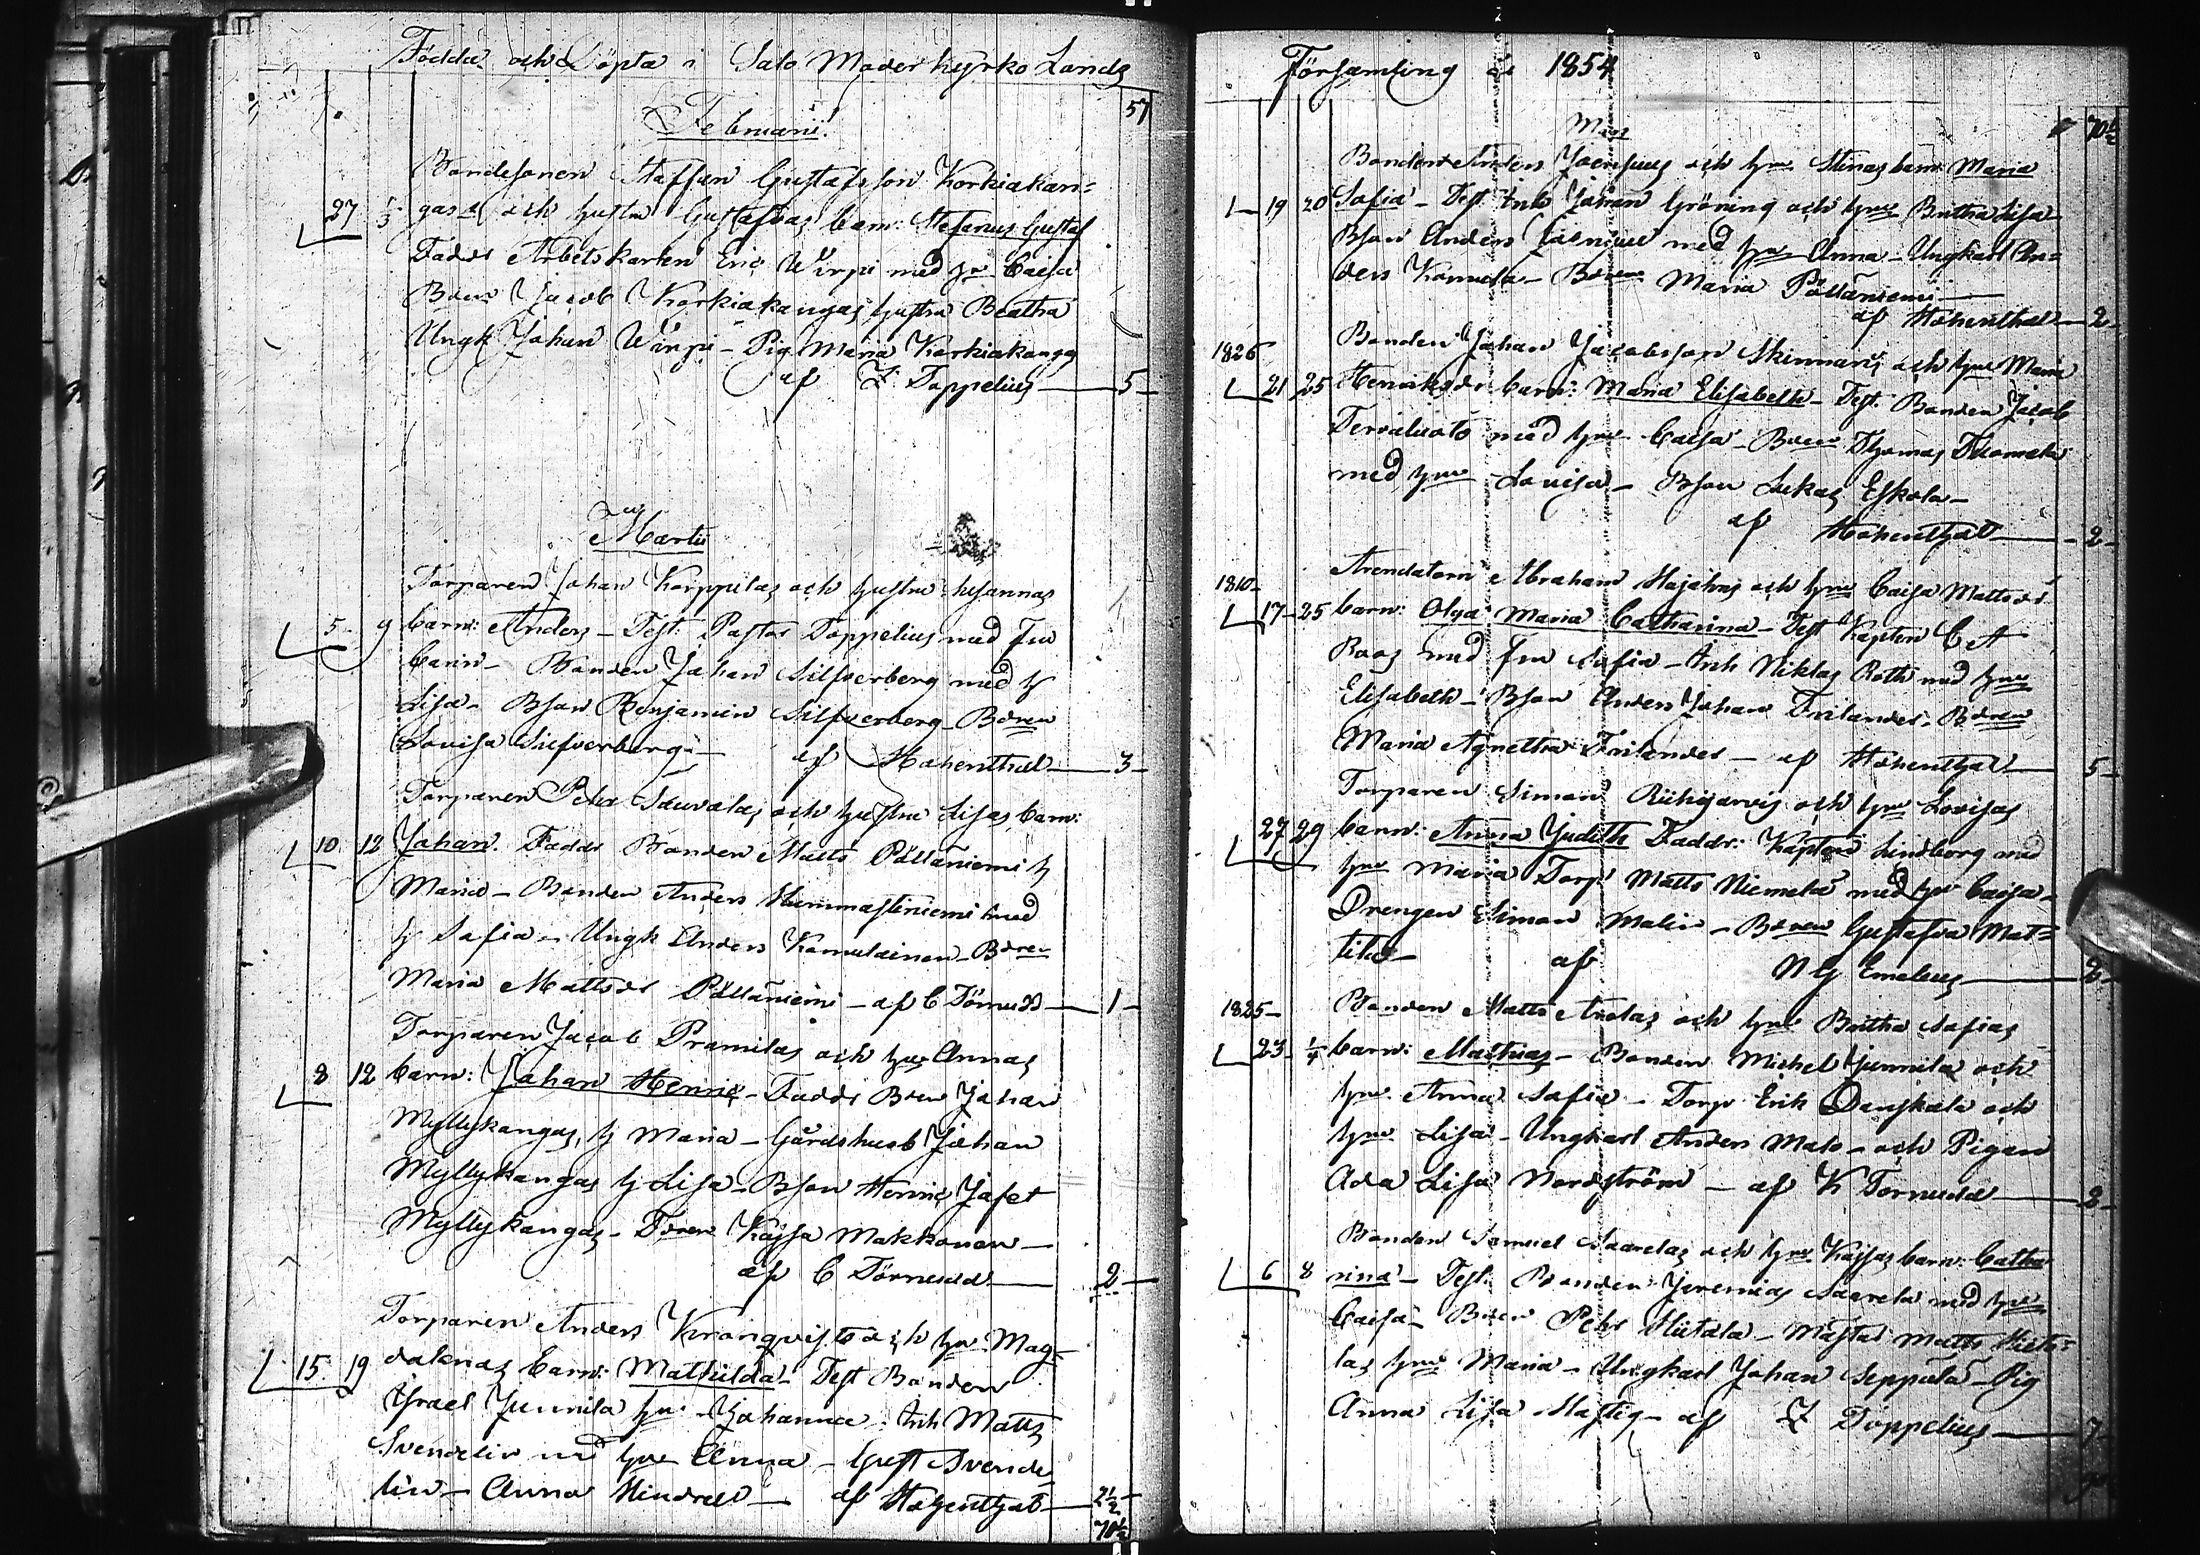 Födda och Döpta i Salo Moderkyrko Lands
57
Februarii.
Bondesonen Staffan Gustafsson Korkiakan=
27 1/3 gas och hustru Gustafvas barn: Stefanus Gustaf
Faddr Arbetskarlen Eric Wirpi med hr Caisa
Bonden Jacob Korkiakangas hustru Beatha
Ungk Johan Wirpi - Pig. Maria Korkiakangas
af Z Toppelius - 5 -
Martii
Torparen Johan Korppilas och hustru Susannas
5 9 barn: Anders - Test: Pastor Toppelius med Fru
Carin - Bonden Johan Silfverberg med h
Lisa - Bson Benjamin Silfverberg - Bdren
Lovisa Silfverberg - af Hohenthal - 3 -
Torparen Petter Sauvalas och hustru Lisas barn:
10 12 Johan. Faddr Bonden Matts Pölläniemi h
Maria - Bonden Anders Hummastiniemi med
h Safia - Ungk Anders Kamulainen - Bdren
Maria Mattsdr Pölläniemi - af C Törnudd - 1 -
Torparen Jacob Pramilas och hru Annas
8 12 barn: Johan Henric - Faddr Bden Johan
Myllykangas, h Maria - Gårdshusb Johan
Myllykangas h Lisa - Bson Henric Jafet
Myllykangas - Tdren Kajsa Makkonen -
af C Törnudd - 2 -
Torparen Anders Kronqvists och hru Mag=
15 19 dalenas barn: Mathilda - Test Bonden
Israel Junnila hru Johanna - Inh Matts
Svendelin med hru Anna - Gust Svende
lin - Anna Hindrell - af Hohenthal - 2 1/2
70 1/2
Församling år 1854
Mars
70 1/2
Bonden Anders och hru Stinas barn: Maria
19 20 Sofia - Test Inh Johan Gröning och hru Britha Lisa
Bson Anders med hru Anna - Ungkarl An=
ders Kamula - Bdren Maria Pölläniemi -
af Hohenthal - 2 -
1826 Bonden Johan Jacobsson Skinnari och hru Maria
21 25 Henriksdr barn: Maria Elisabeth - Test. Bonden Jacob
Tervaluoto med hru Caisa - Bden Thomas
med hru Lovisa - Bson Lukas Eskola -
af Hohenthal - 2 -
1810 - Arendatorn Abraham och hru Caisa Mattsdr
17 - 25 barn: Olga Maria Catharina - Test Kapten C A
Roos med fru Sofia - Inh Niklas Roth med hru
Elisabeth - Bson Anders Johan Frilander - Bdren
Maria Agnetha Frilander - af Hohenthal - 5 -
Torparen Simon Riihijärvis och hru Lovisas
27 29 barn: Anna Judith Faddr: Kapten Lindborg med
hru Maria Torp Matts Niemelä med hr Caisa -
Drengen Simon Malin - Bdren Gustafva Mat=
tila - af N G Emeleus - 2 -
1825 - Bonden Matts Anolas och hru Britha Safias
23 1/4 barn: Mathias - Bonden Michel Junnila och
hru Anna Safia - Torp Erik Danskala och
hru Lisa - Ungkarl Anders Mato - och Pigan
Ada Lisa Nordström - af K Törnudd - 2 -
Bonden Samuel Saarelas och hru Kajsas barn: Catha
6 8 rina - Test: Bonden Jeremias Saarela med hru
Caisa - Bden Pehr Hiitala - Mästar Matts Hieta=
las hru Maria - Ungkarl Johan Seppälä - Pig
Anna Lisa Hastig - af Z Toppelius - 7 -